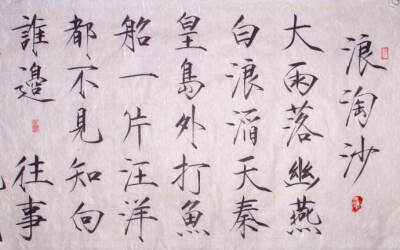 浪淘沙
大雨落幽燕
白浪滔天秦
皇島外打魚
船一片汪洋
都不見知向
誰邊 往事